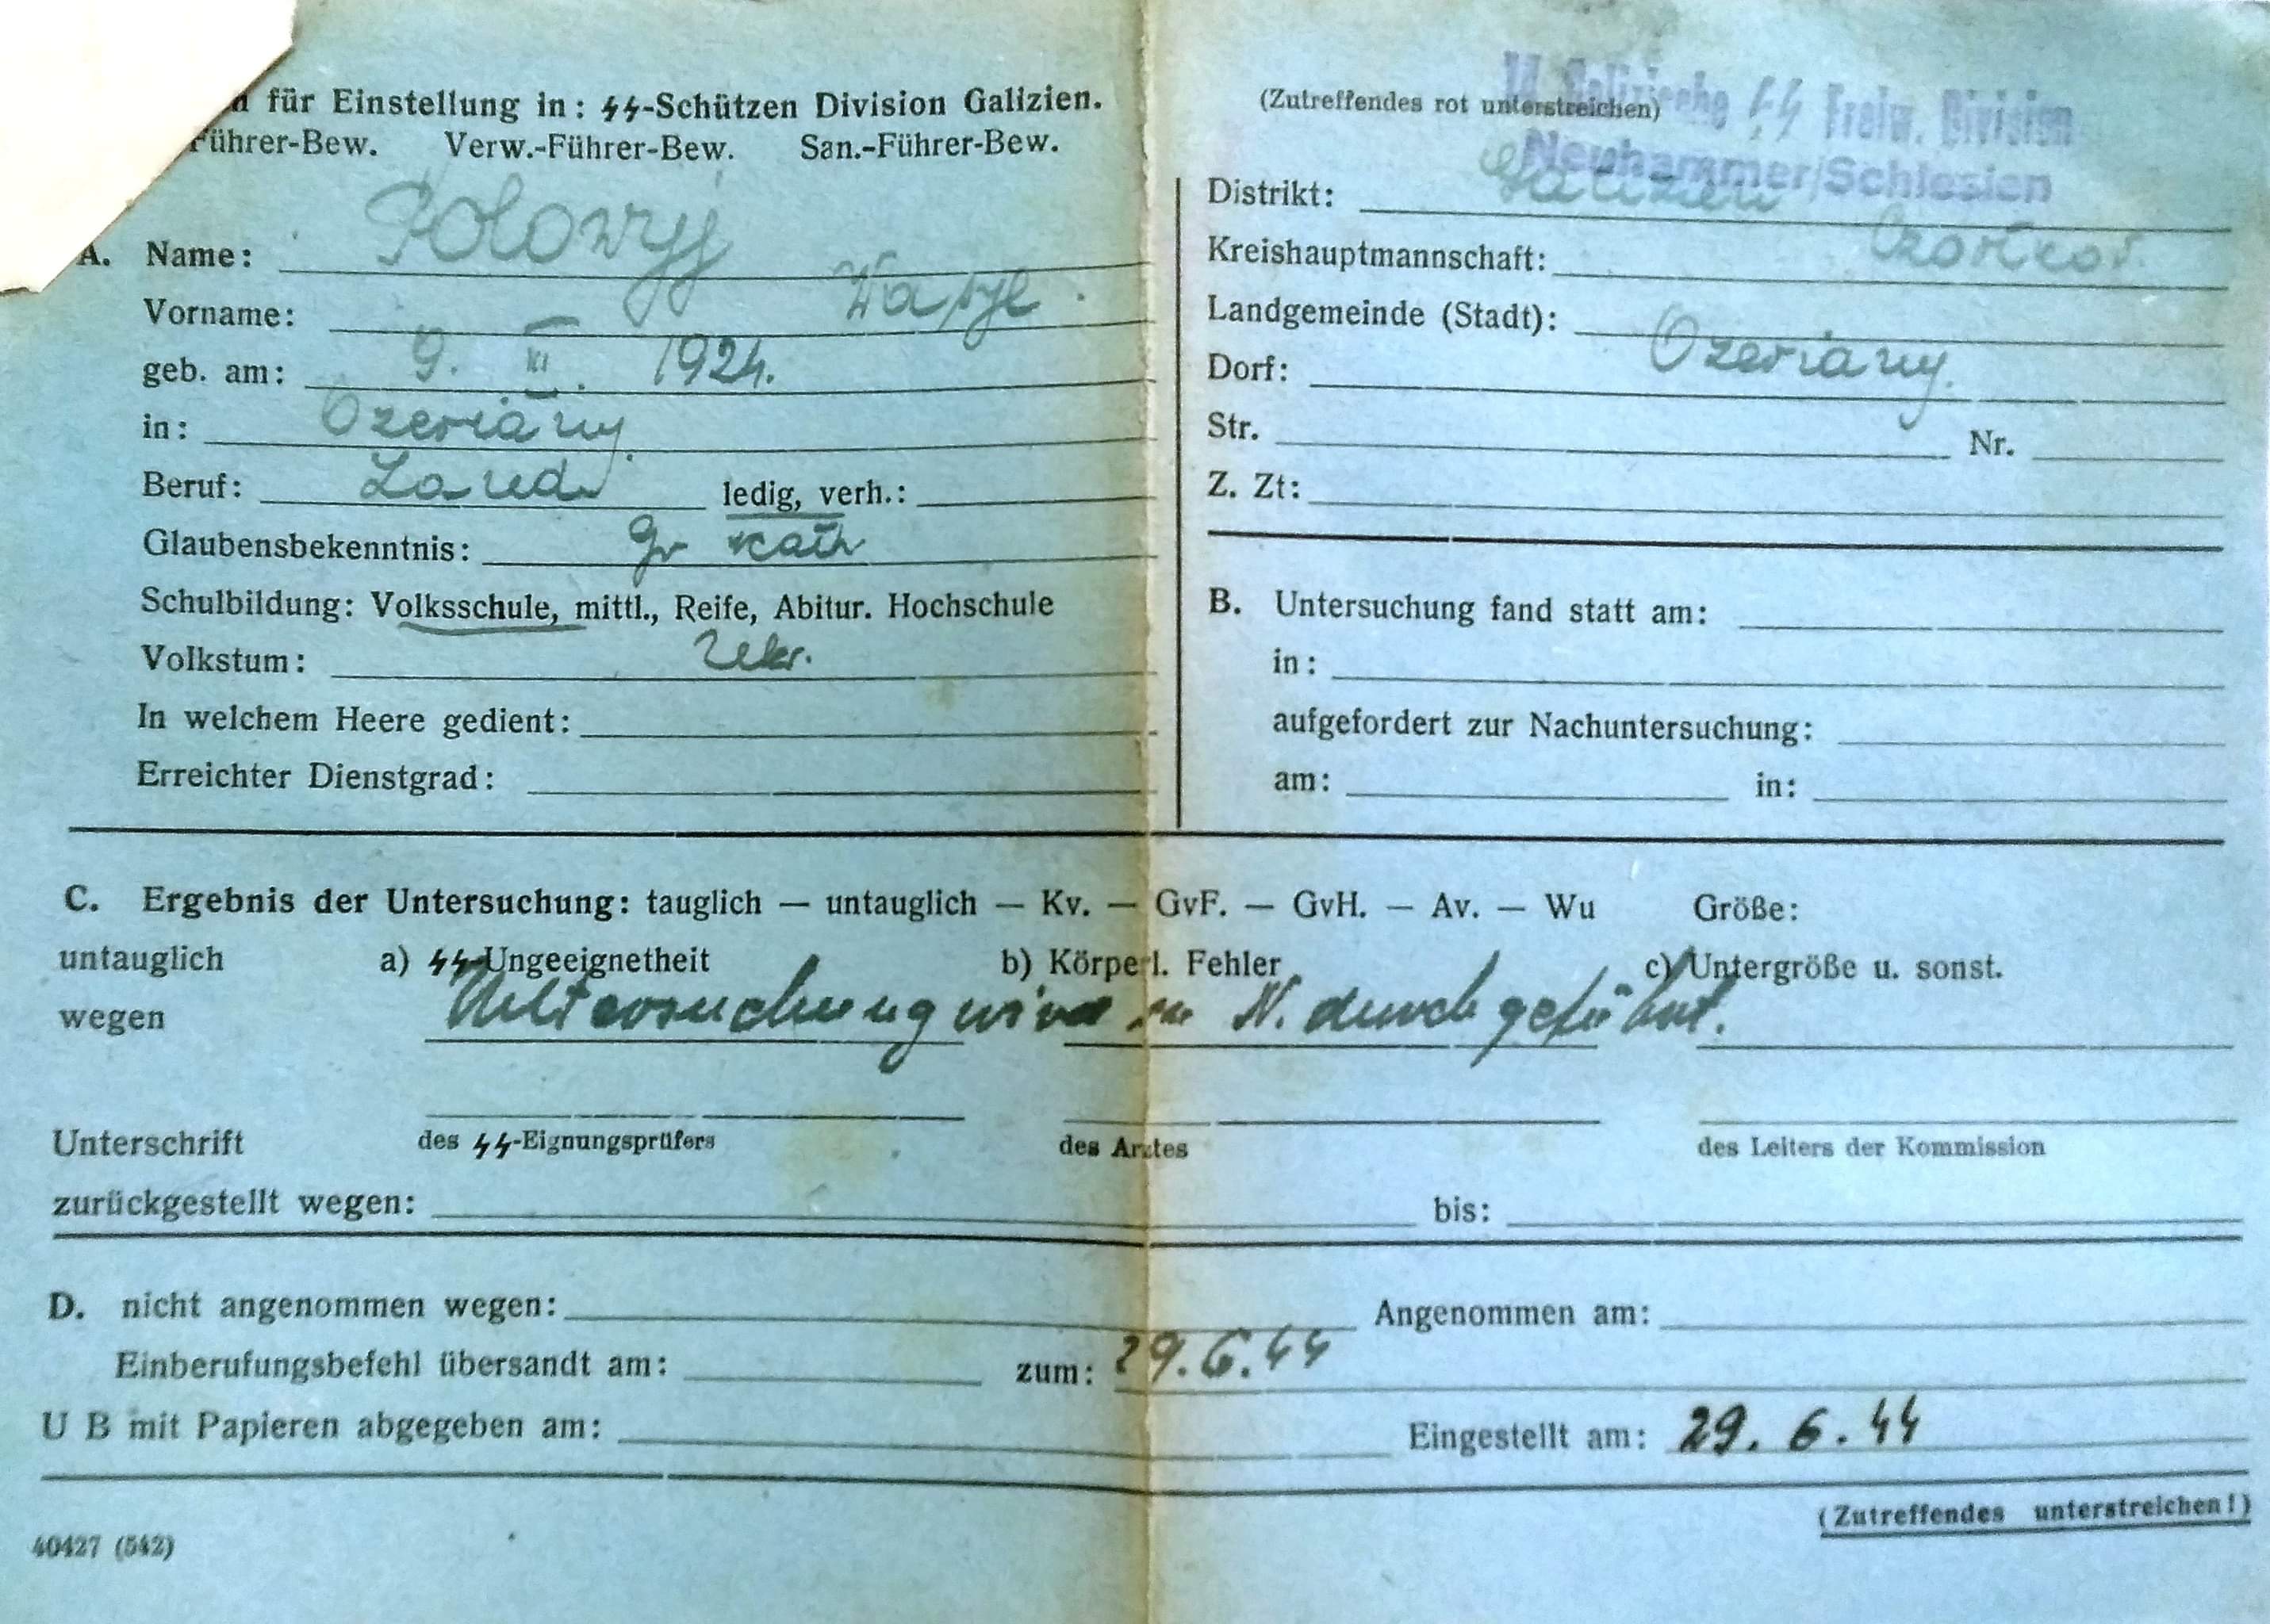 für Einstellung in: SS-Schützen Division Galizien.
Führer-Bew. Verw.-Führer-Bew. San.-Führer-Bew.
A. Name: Polowyj
Vorname: Wasyl.
geb. am: 9. III. 1924.
in: Ozeriany.
Beruf: Landw ledig, verh.:
Glaubensbekenntnis: gr kath
Schulbildung: Volksschule, mittl., Reife, Abitur. Hochschule
Volkstum: Ukr.
In welchem Heere gedient:
Erreichter Dienstgrad:
(Zutreffendes rot unterstreichen)
Galizische SS Freiw. Division
Neuhammer/Schlesien
Distrikt: Galizien
Kreishauptmannschaft: Czortkov.
Landgemeinde (Stadt): Ozeriany.
Dorf:
Str. Nr.
Z. Zt:
B. Untersuchung fand statt am:
in:
aufgefordert zur Nachuntersuchung:
am: in:
C. Ergebnis der Untersuchung: tauglich — untauglich — Kv. — GvF. — GvH. — Av. — Wu Größe:
untauglich a) SS-Ungeeignetheit b) Körperl. Fehler c) Untergröße u. sonst.
wegen Untersuchung wird in N. durchgeführt.
Unterschrift des SS-Eignungsprüfers des Arztes des Leiters der Kommission
zurückgestellt wegen: bis:
D. nicht angenommen wegen: Angenommen am:
Einberufungsbefehl übersandt am: zum: 29.6.44
U B mit Papieren abgegeben am: Eingestellt am: 29.6.44
(Zutreffendes unterstreichen!)
40427 (542)